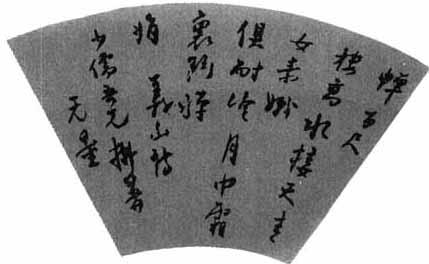 蟬百尺
樓高水接天青
女素娥
俱耐冷月中霜
裏鬥嬋
娟 義山詩
少儒吾兄拂暑
无量